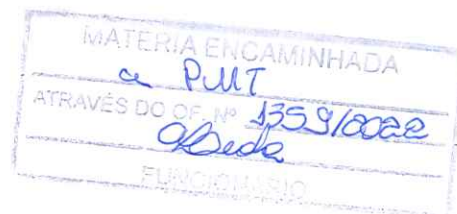 MATERIA ENCAMINHADA
a PMT
ATRAVÉS DO OF. Nº 1359/2022
FUNCIONÁRIO